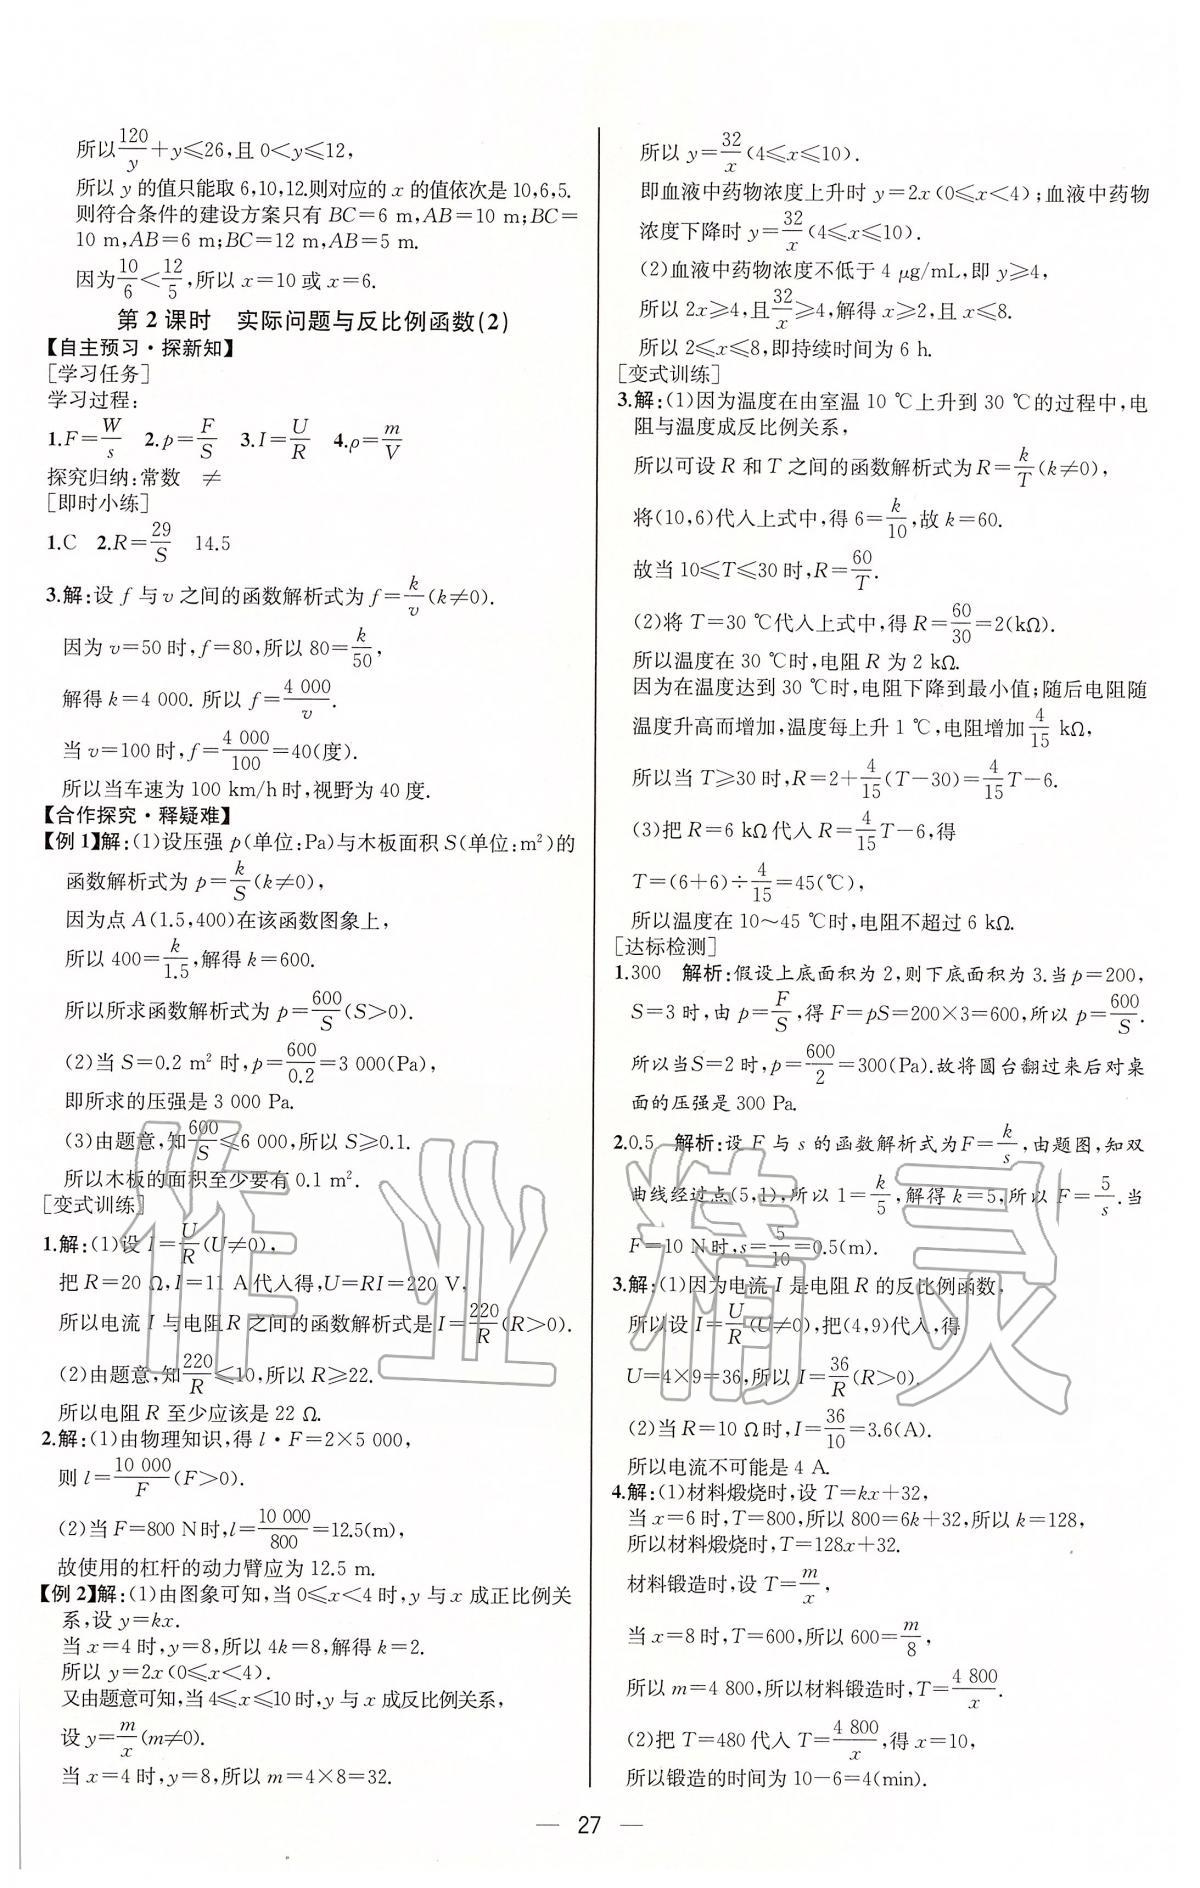 所以120/y+y≤26,且0<y≤12,
所以 y 的值只能取 6,10,12.则对应的 x 的值依次是 10,6,5.
则符合条件的建设方案只有 BC=6 m,AB=10 m;BC=
10 m,AB=6 m;BC=12 m,AB=5 m.
因为10/6<12/5,所以 x=10 或 x=6.
第 2 课时 实际问题与反比例函数(2)
【自主预习·探新知】
[学习任务]
学习过程:
1.F=W/s 2.p=F/S 3.I=U/R 4.ρ=m/V
探究归纳:常数 ≠
[即时小练]
1.C 2.R=29/S 14.5
3.解:设 f 与 v 之间的函数解析式为 f=k/v(k≠0).
因为 v=50 时,f=80,所以 80=k/50,
解得 k=4 000. 所以 f=4 000/v.
当 v=100 时,f=4 000/100=40(度).
所以当车速为 100 km/h 时,视野为 40 度.
【合作探究·释疑难】
【例 1】解:(1)设压强 p(单位:Pa)与木板面积 S(单位:m²)的
函数解析式为 p=k/S(k≠0),
因为点 A(1.5,400)在该函数图象上,
所以 400=k/1.5,解得 k=600.
所以所求函数解析式为 p=600/S(S>0).
(2)当 S=0.2 m² 时,p=600/0.2=3 000(Pa),
即所求的压强是 3 000 Pa.
(3)由题意,知600/S≤6 000,所以 S≥0.1.
所以木板的面积至少要有 0.1 m².
[变式训练]
1.解:(1)设 I=U/R(U≠0),
把 R=20 Ω,I=11 A代入得,U=RI=220 V,
所以电流 I 与电阻 R 之间的函数解析式是 I=220/R(R>0).
(2)由题意,知220/R≤10,所以 R≥22.
所以电阻 R 至少应该是 22 Ω.
2.解:(1)由物理知识,得 l·F=2×5 000,
则 l=10 000/F(F>0).
(2)当 F=800 N时,l=10 000/800=12.5(m),
故使用的杠杆的动力臂应为 12.5 m.
【例 2】解:(1)由图象可知,当 0≤x<4 时,y 与 x 成正比例关
系,设 y=kx.
当 x=4 时,y=8,所以 4k=8,解得 k=2.
所以 y=2x(0≤x<4).
又由题意可知,当 4≤x≤10 时,y 与 x 成反比例关系,
设 y=m/x(m≠0).
当 x=4 时,y=8,所以 m=4×8=32.
所以 y=32/x(4≤x≤10).
即血液中药物浓度上升时 y=2x(0≤x<4);血液中药物
浓度下降时 y=32/x(4≤x≤10).
(2)血液中药物浓度不低于 4 μg/mL,即 y≥4,
所以 2x≥4,且32/x≥4,解得 x≥2,且 x≤8.
所以 2≤x≤8,即持续时间为 6 h.
[变式训练]
3.解:(1)因为温度在由室温 10 ℃上升到 30 ℃的过程中,电
阻与温度成反比例关系,
所以可设 R 和 T 之间的函数解析式为 R=k/T(k≠0),
将(10,6)代入上式中,得 6=k/10,故 k=60.
故当 10≤T≤30 时,R=60/T.
(2)将 T=30 ℃代入上式中,得 R=60/30=2(kΩ).
所以温度在 30 ℃时,电阻 R 为 2 kΩ.
因为在温度达到 30 ℃时,电阻下降到最小值;随后电阻随
温度升高而增加,温度每上升 1 ℃,电阻增加4/15 kΩ,
所以当 T≥30 时,R=2+4/15(T-30)=4/15T-6.
(3)把 R=6 kΩ代入 R=4/15T-6,得
T=(6+6)÷4/15=45(℃),
所以温度在 10~45 ℃时,电阻不超过 6 kΩ.
[达标检测]
1.300 解析:假设上底面积为 2,则下底面积为 3.当 p=200,
S=3 时,由 p=F/S,得 F=pS=200×3=600,所以 p=600/S.
所以当S=2 时,p=600/2=300(Pa).故将圆台翻过来后对桌
面的压强是 300 Pa.
2.0.5 解析:设 F 与 s 的函数解析式为F=k/s,由题图,知双
曲线经过点(5,1),所以 1=k/5,解得 k=5,所以 F=5/s.当
F=10 N时,s=5/10=0.5(m).
3.解:(1)因为电流 I 是电阻 R 的反比例函数,
所以设 I=U/R(U≠0),把(4,9)代入,得
U=4×9=36,所以 I=36/R(R>0).
(2)当 R=10 Ω时,I=36/10=3.6(A).
所以电流不可能是 4 A.
4.解:(1)材料煅烧时,设 T=kx+32,
当 x=6 时,T=800,所以 800=6k+32,所以 k=128,
所以材料煅烧时,T=128x+32.
材料锻造时,设 T=m/x,
当 x=8 时,T=600,所以 600=m/8,
所以 m=4 800,所以材料锻造时,T=4 800/x.
(2)把 T=480 代入 T=4 800/x,得 x=10,
所以锻造的时间为 10-6=4(min).
— 27 —
作业精灵